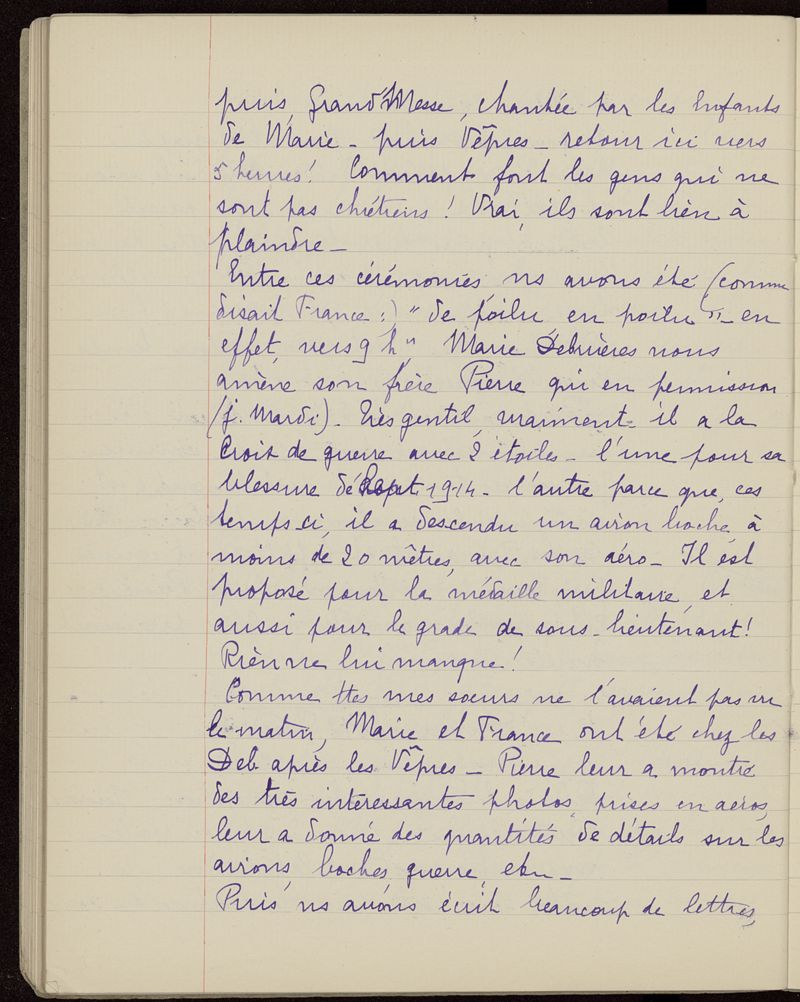 puis, Grand'Messe, chantée par les Enfants
de Marie - puis Vêpres - retour ici vers
5 heures! Comment font les gens qui ne
sont pas chrétiens! Vrai, ils sont bien à
plaindre -
Entre ces cérémonies ns avons été (comme
disait France:) "de poilu en poilu" - en
effet, vers 9 h", Marie Debruères nous
amène son frère Pierre qui en permission
(j. Mardi). Très gentil, vraiment - il a la
Croix de guerre avec 2 étoiles - l'une pour sa
blessure de Sept 1914 - l'autre parce que, ces
temps-ci, il a descendu un avion boche, à
moins de 20 mètres, avec son aéro - Il est
proposé pour la médaille militaire, et
aussi pour le grade de sous-lieutenant!
Rien ne lui manque!
Comme ttes mes soeurs ne l'avaient pas vu
le matin, Marie et France ont été chez les
Deb après les Vêpres - Pierre leur a montré
des très intéressantes photos, prises en aéros,
leur a donné des quantités de détails sur les
avions, boches, guerre, etc -
Puis ns avons écrit beaucoup de lettres,